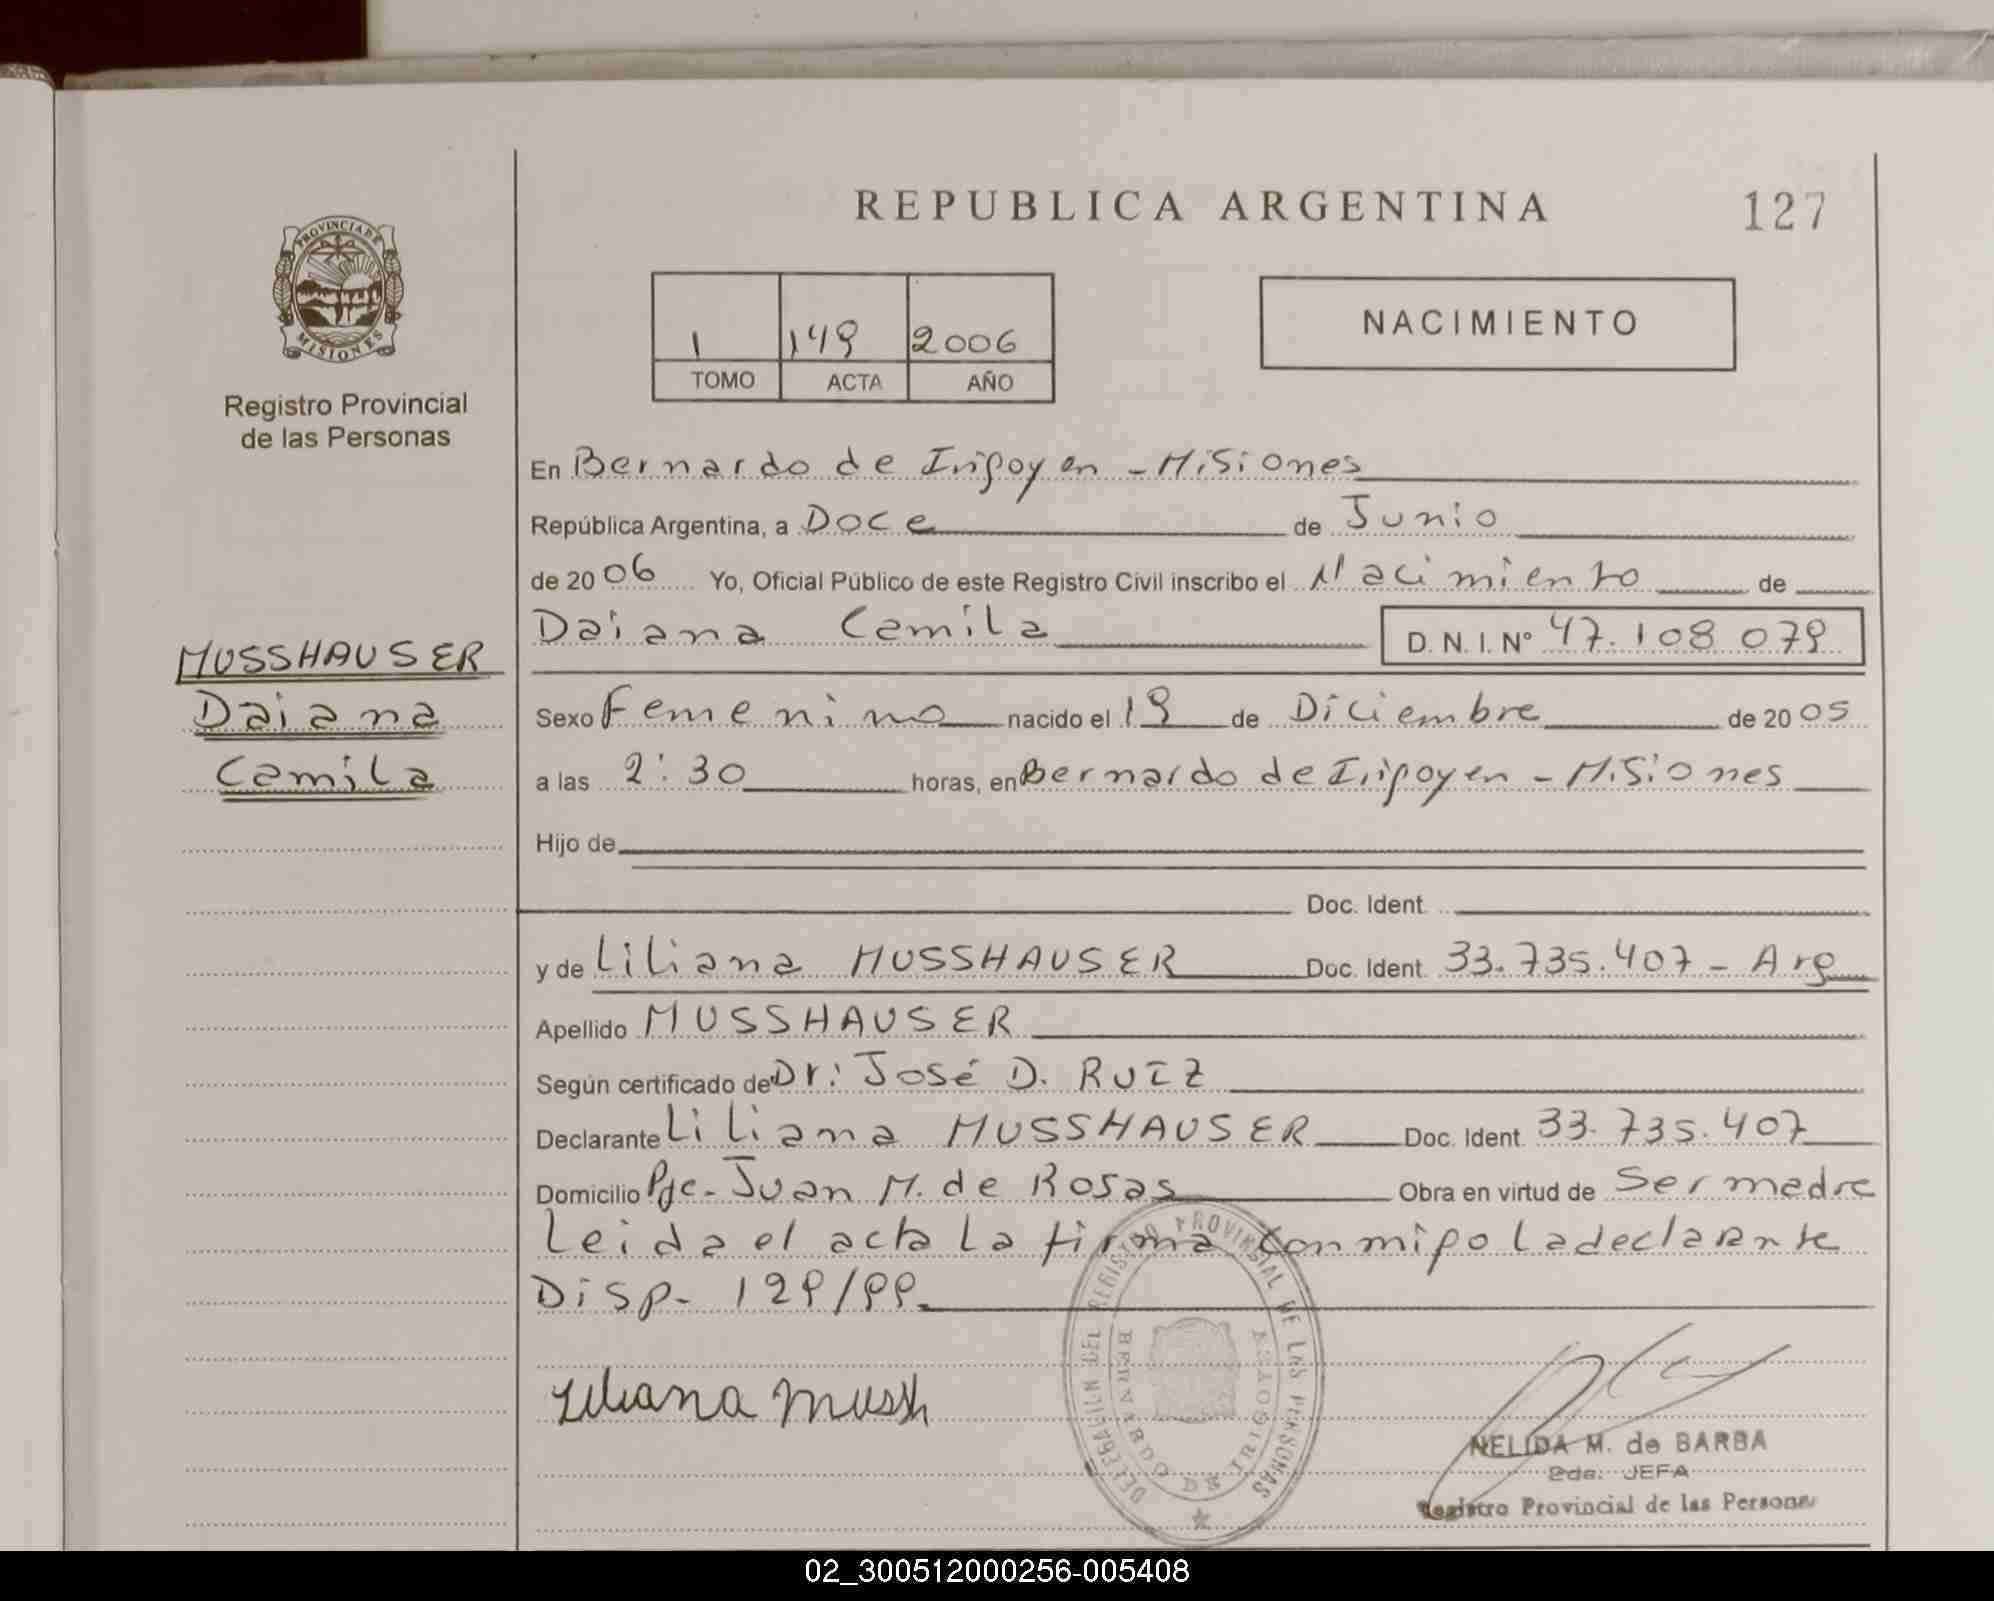 REPUBLICA ARGENTINA
127
PROVINCIA DE
MISIONES
Registro Provincial
de las Personas
1 149 2006
TOMO ACTA AÑO
NACIMIENTO
En Bernardo de Irigoyen - Misiones
República Argentina, a Doce de Junio
de 2006 Yo, Oficial Público de este Registro Civil inscribo el Nacimiento de
Daiana Camila D. N. I. Nº 47.108 079
MUSSHAUSER
Daiana
Camila
Sexo Femenino nacido el 19 de Diciembre de 2005
a las 2:30 horas, en Bernardo de Irigoyen - Misiones
Hijo de
Doc. Ident.
y de Liliana MUSSHAUSER Doc. Ident. 33.735.407 - Arg
Apellido MUSSHAUSER
Según certificado de Dr: José D. RUIZ
Declarante Liliana MUSSHAUSER Doc. Ident. 33.735.407
Domicilio Pje - Juan M. de Rosas Obra en virtud de Ser madre
Leida el acta la firma conmigo la declarante
Disp- 129/99.
Liliana Mussh
DELEGACION DEL REGISTRO PROVINCIAL DE LAS PERSONAS
BERNARDO DE IRIGOYEN
NELIDA M. de BARBA
2da. JEFA
Registro Provincial de las Personas
02_300512000256-005408